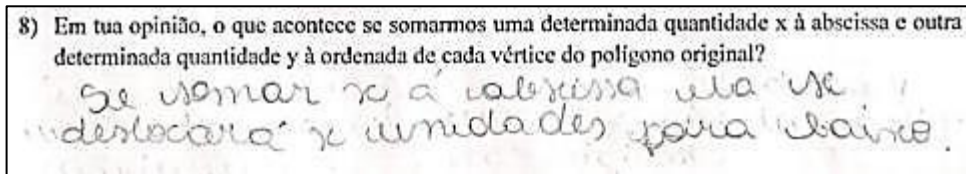 8) Em tua opinião, o que acontece se somarmos uma determinada quantidade x à abscissa e outra
determinada quantidade y à ordenada de cada vértice do polígono original?
Se somar x a abscissa ela se
deslocará x unidades para baixo.